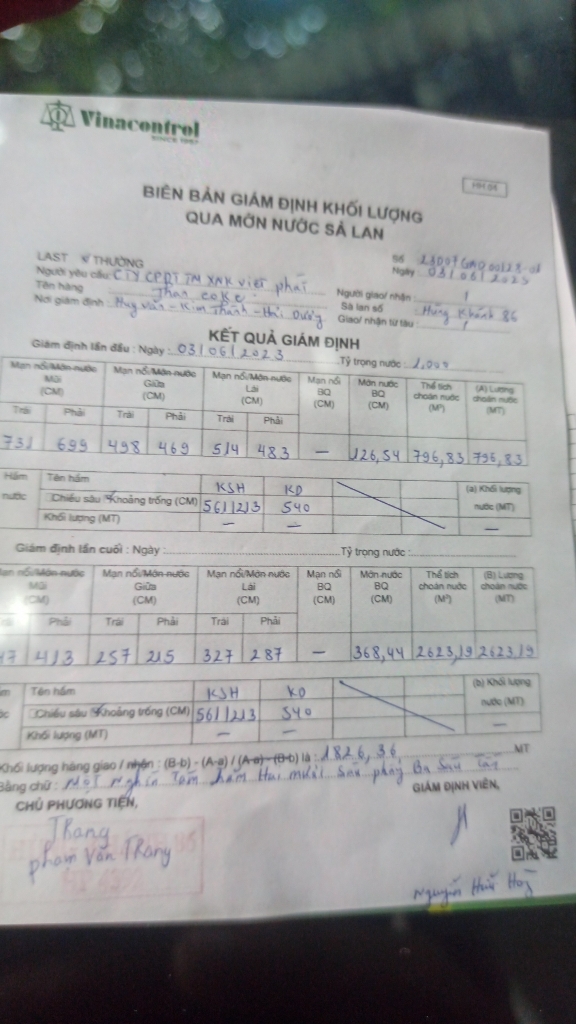 Vinacontrol
SINCE 1957
HH-06
BIÊN BẢN GIÁM ĐỊNH KHỐI LƯỢNG
QUA MỚN NƯỚC SÀ LAN
LAST THƯỜNG
Số
Ngày 03/06/2023
Người yêu cầu: CTY CPDT TM XNK việt phát
Tên hàng Than coke
Người giao/ nhận /
Nơi giám định : Huy Văn - Kim Thành - Hải Dương
Sà lan số Hùng Khánh 86
Giao/ nhận từ tàu /
KẾT QUẢ GIÁM ĐỊNH
Giám định lần đầu : Ngày : 03/06/2023 Tỷ trọng nước : 1,000
Mạn nổi/Mớn nước Mũi (CM) Mạn nổi/Mớn nước Giữa (CM) Mạn nổi/Mớn nước Lái (CM) Mạn nổi BQ (CM) Mớn nước BQ (CM) Thể tích choán nước (M³) (A) Lượng choán nước (MT)
Trái Phải Trái Phải Trái Phải
731 699 498 469 514 483 — 126,54 796,83 796,83
Hầm nước Tên hầm KSH KD (a) Khối lượng nước (MT)
Chiều sâu Khoảng trống (CM) 561/213 540
Khối lượng (MT) — — —
Giám định lần cuối : Ngày : Tỷ trọng nước :
Mạn nổi/Mớn nước Mũi (CM) Mạn nổi/Mớn nước Giữa (CM) Mạn nổi/Mớn nước Lái (CM) Mạn nổi BQ (CM) Mớn nước BQ (CM) Thể tích choán nước (M³) (B) Lượng choán nước (MT)
Phải Trái Phải Trái Phải
413 257 215 327 287 — 368,44 2623,19 2623,19
Tên hầm KSH KD (b) Khối lượng nước (MT)
Chiều sâu Khoảng trống (CM) 561/213 540
Khối lượng (MT) — — —
Khối lượng hàng giao / nhận : (B-b) - (A-a) / (A-a) - (B-b) là : 1826,36 MT
Bằng chữ : Một Nghìn Tám trăm Hai mươi Sáu phẩy Ba Sáu Tấn
CHỦ PHƯƠNG TIỆN,
GIÁM ĐỊNH VIÊN,
Thang
phạm Văn Thang
Nguyễn